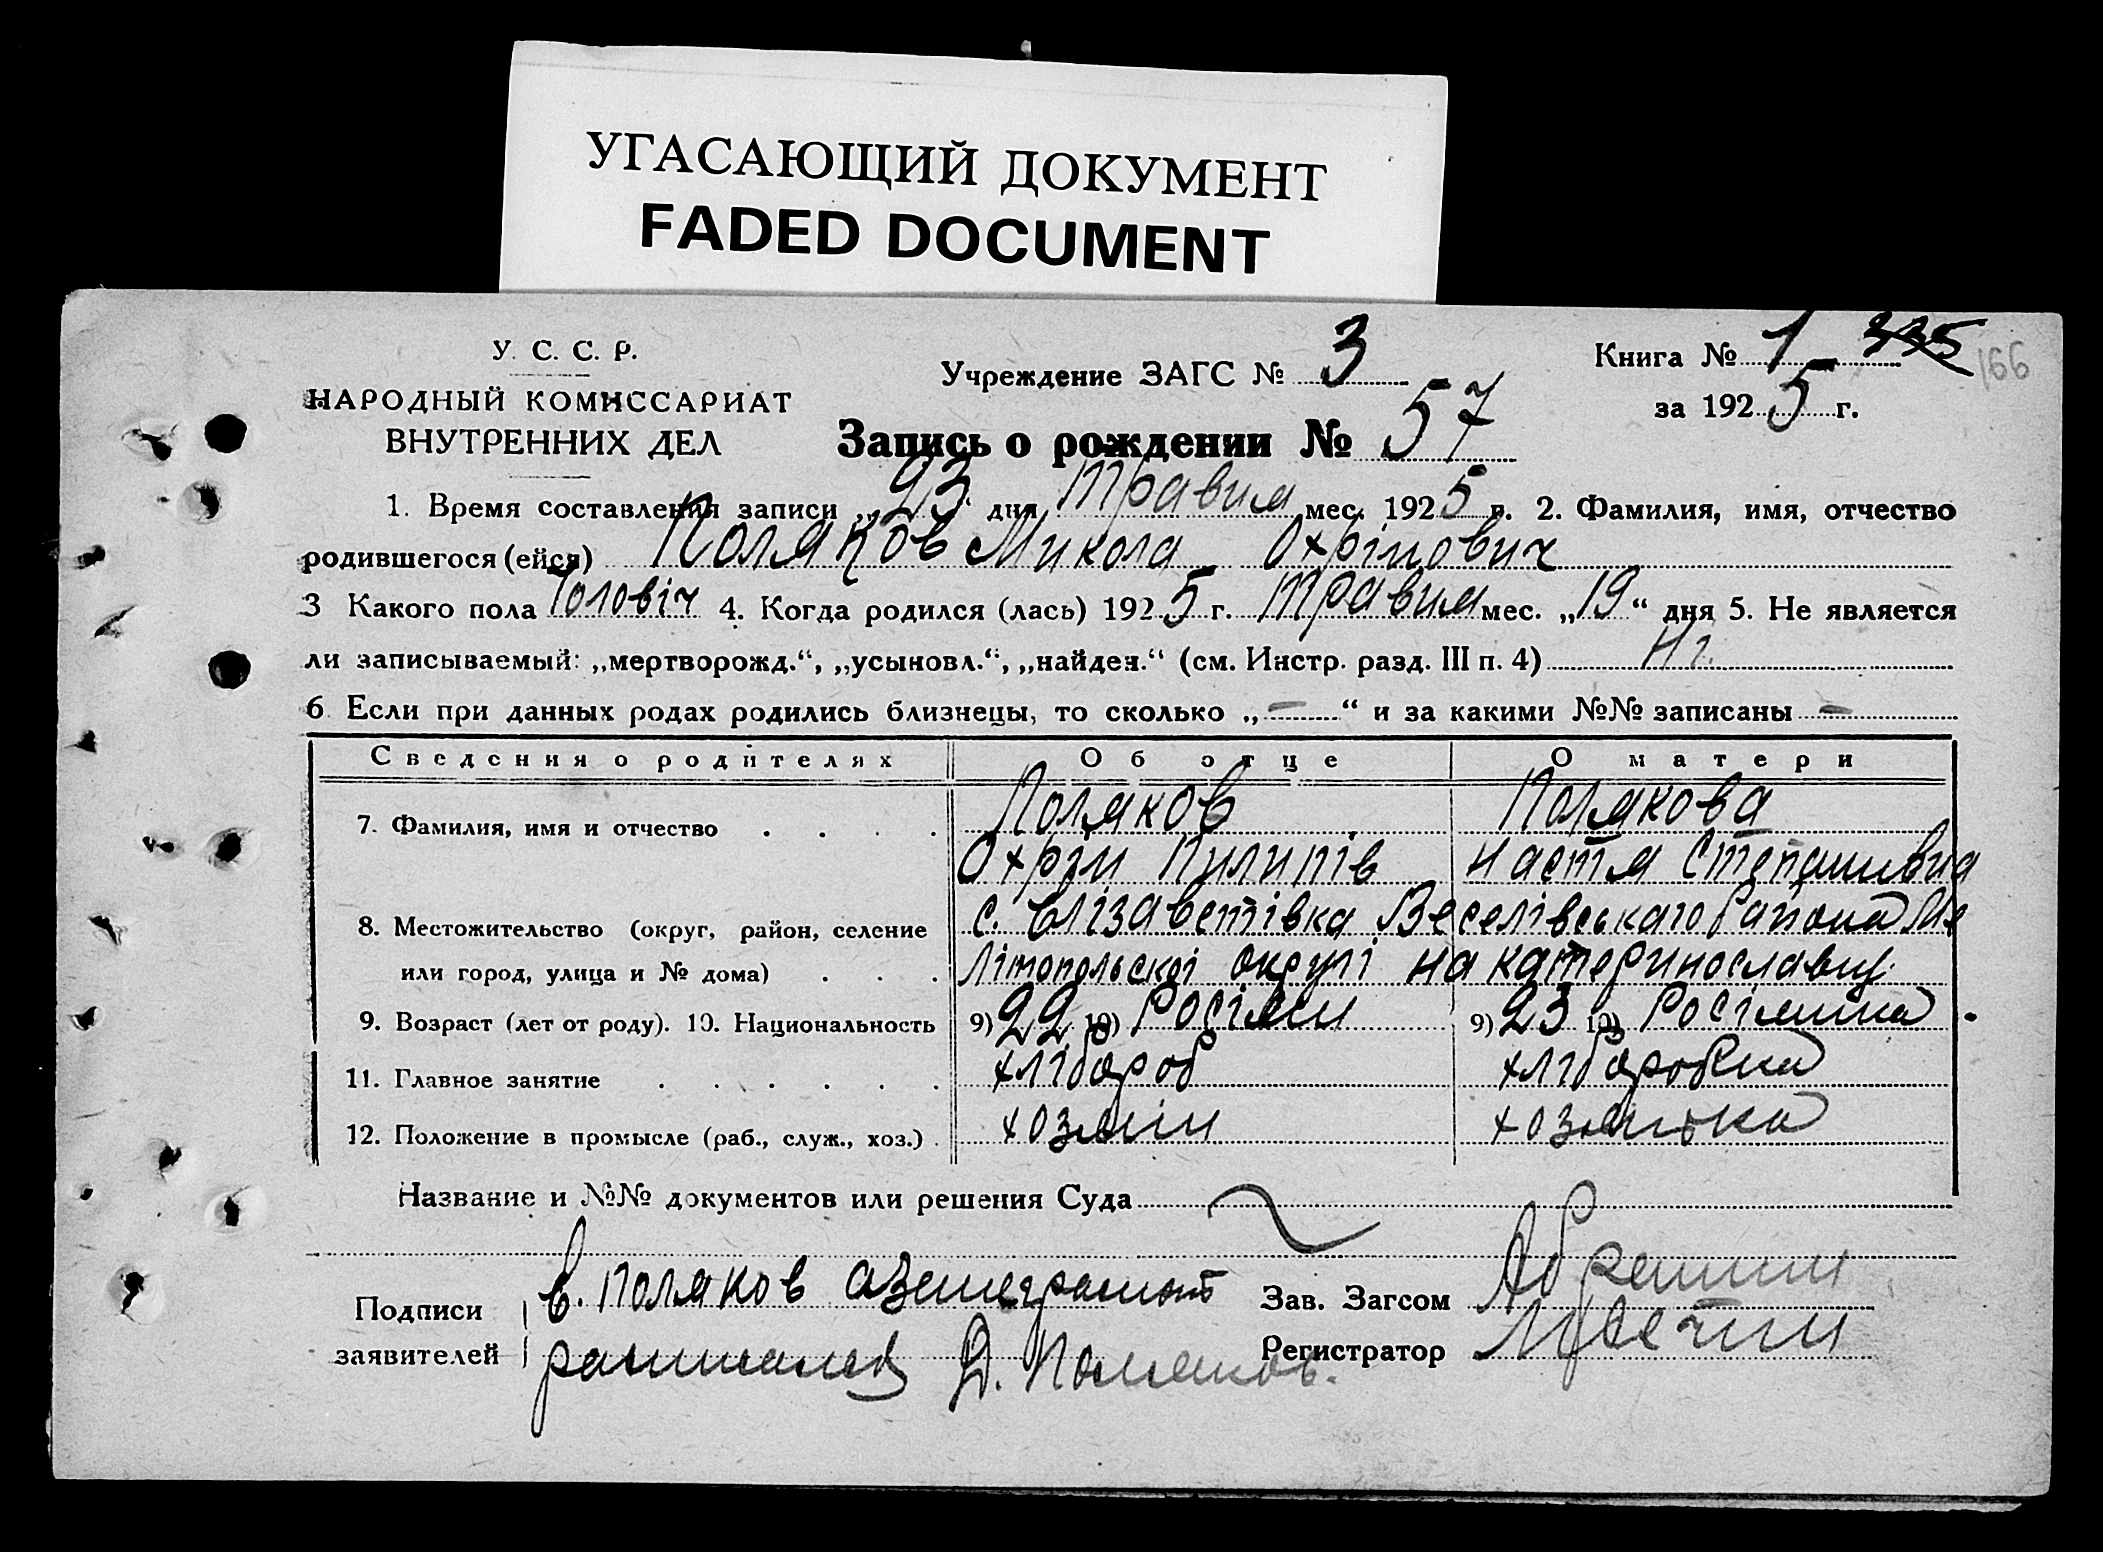 УГАСАЮЩИЙ ДОКУМЕНТ
FADED DOCUMENT
У. С. С. Р.
НАРОДНЫЙ КОМИССАРИАТ
ВНУТРЕННИХ ДЕЛ
Учреждение ЗАГС № 3
Книга № 1 - 335 166
за 1925 г.
Запись о рождении № 57
1. Время составления записи „23“ дня Травня мес. 1925 г. 2. Фамилия, имя, отчество
родившегося (ейся) Поляков Микола Охрімович
3 Какого пола Чоловіч 4. Когда родился (лась) 1925 г. Травня мес. „19“ дня 5. Не является
ли записываемый: „мертворожд.“, „усыновл.“, „найден.“ (см. Инстр. разд. III п. 4) Ні
6. Если при данных родах родились близнецы, то сколько „—“ и за какими №№ записаны —
Сведения о родителях Об отце О матери
7. Фамилия, имя и отчество . . . . Поляков Полякова
Охрім Пилипів Настя Степанивна
8. Местожительство (округ, район, селение с. Єлізаветівка Веселівського району Ме
или город, улица и № дома) . . . літопольскоі округі на катеринославщ.
9. Возраст (лет от роду). 10. Национальность 9) 22 10) Росіянин 9) 23 10) Росіянка
11. Главное занятие . . . . . . хлібороб хліборобка
12. Положение в промысле (раб., служ., хоз.) . хозяин хозянька
Название и №№ документов или решения Суда
Подписи заявителей
в. Поляков а за неграмотн
Д. Поляков.
Зав. Загсом
Регистратор